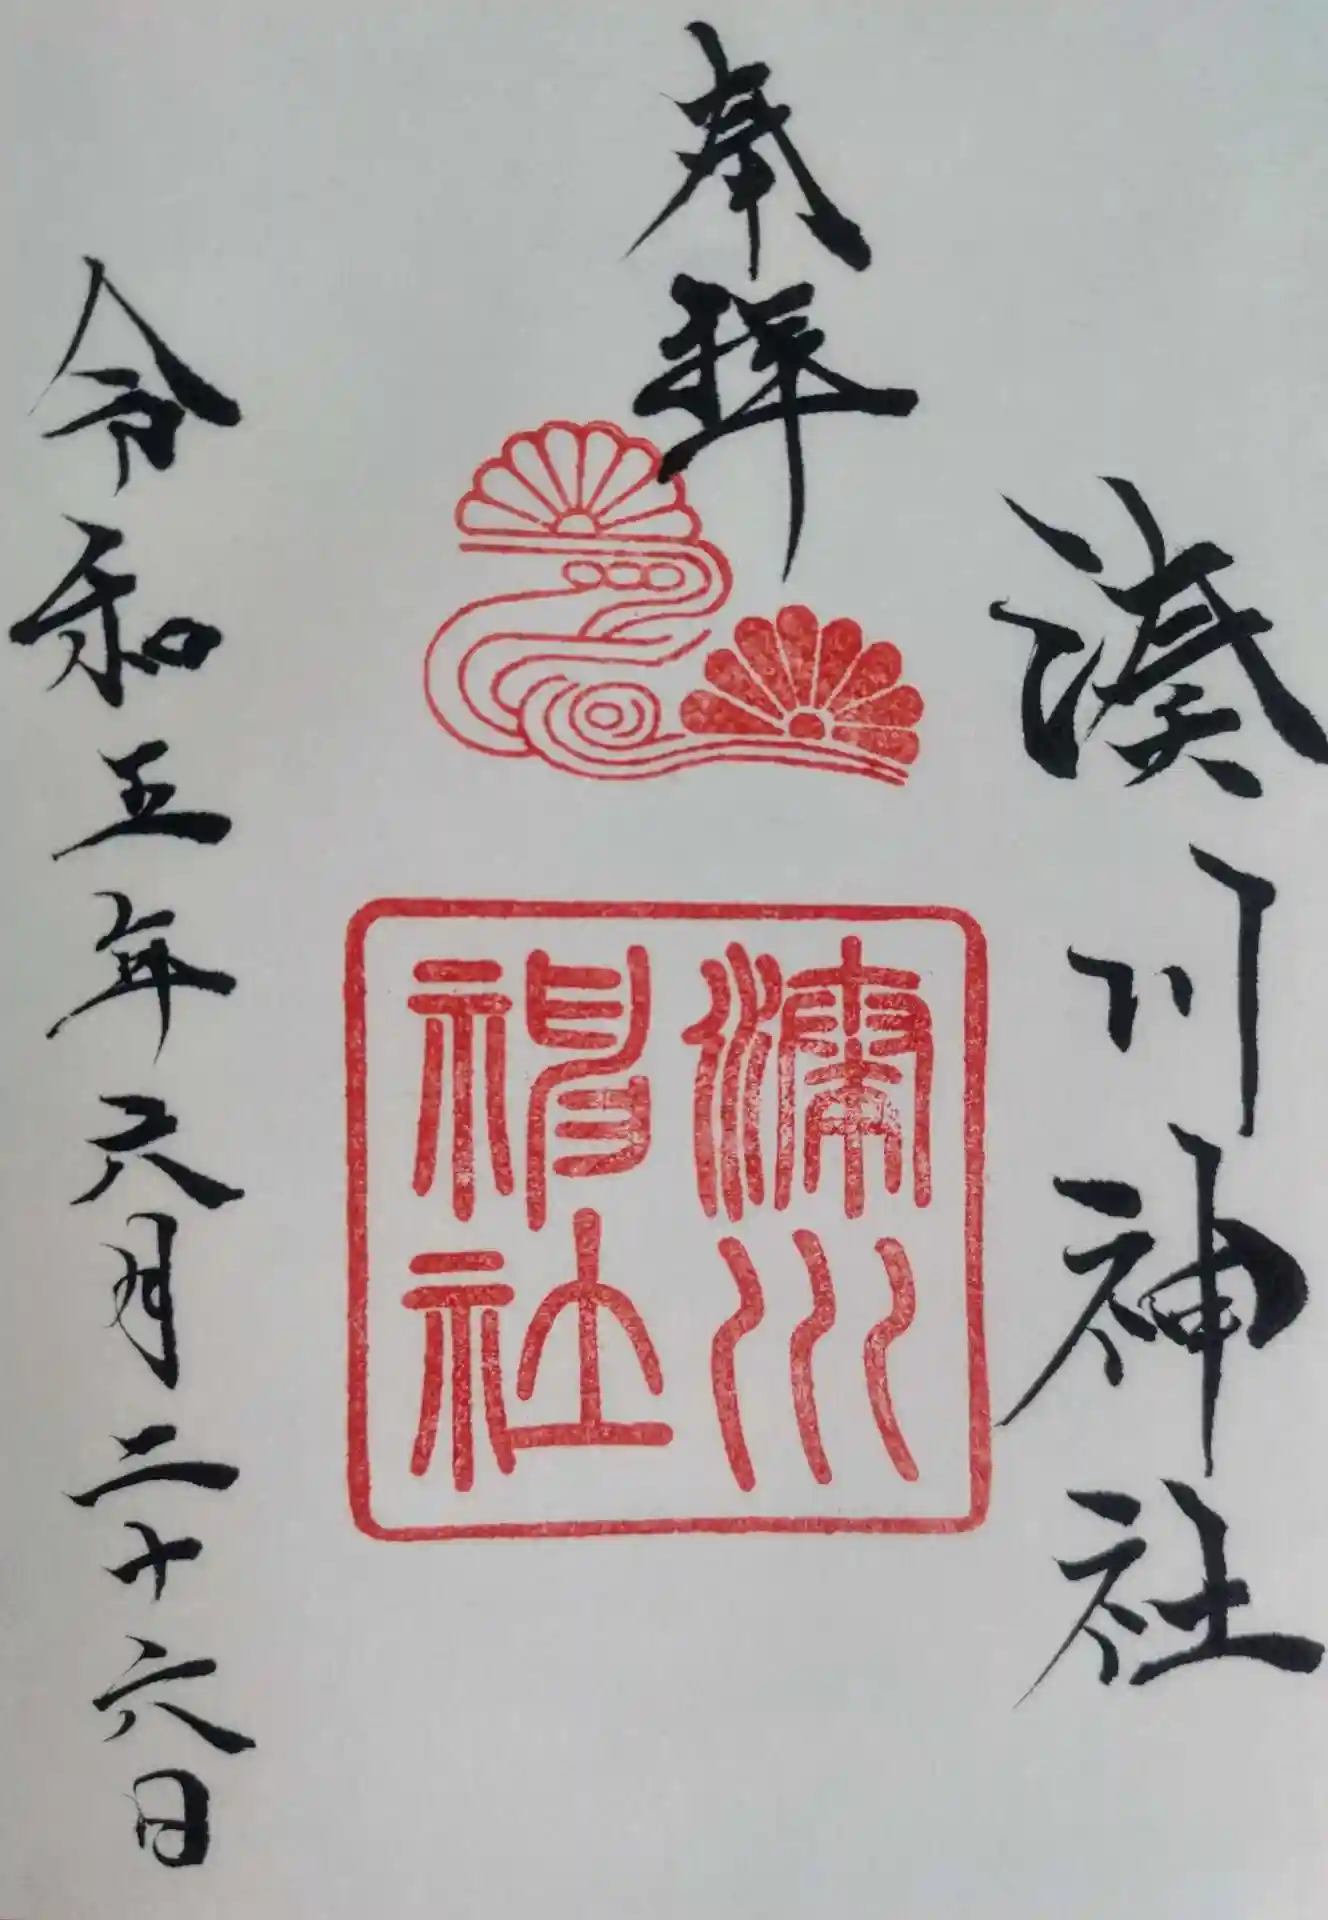 奉拝
湊川神社
湊川
神社
令和五年六月二十六日